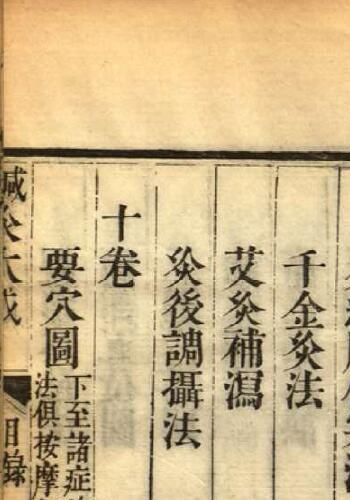 千金灸法
艾灸補瀉
灸後調攝法
十卷
要穴圖
下至諸症
法俱按摩
鍼灸大成
目錄